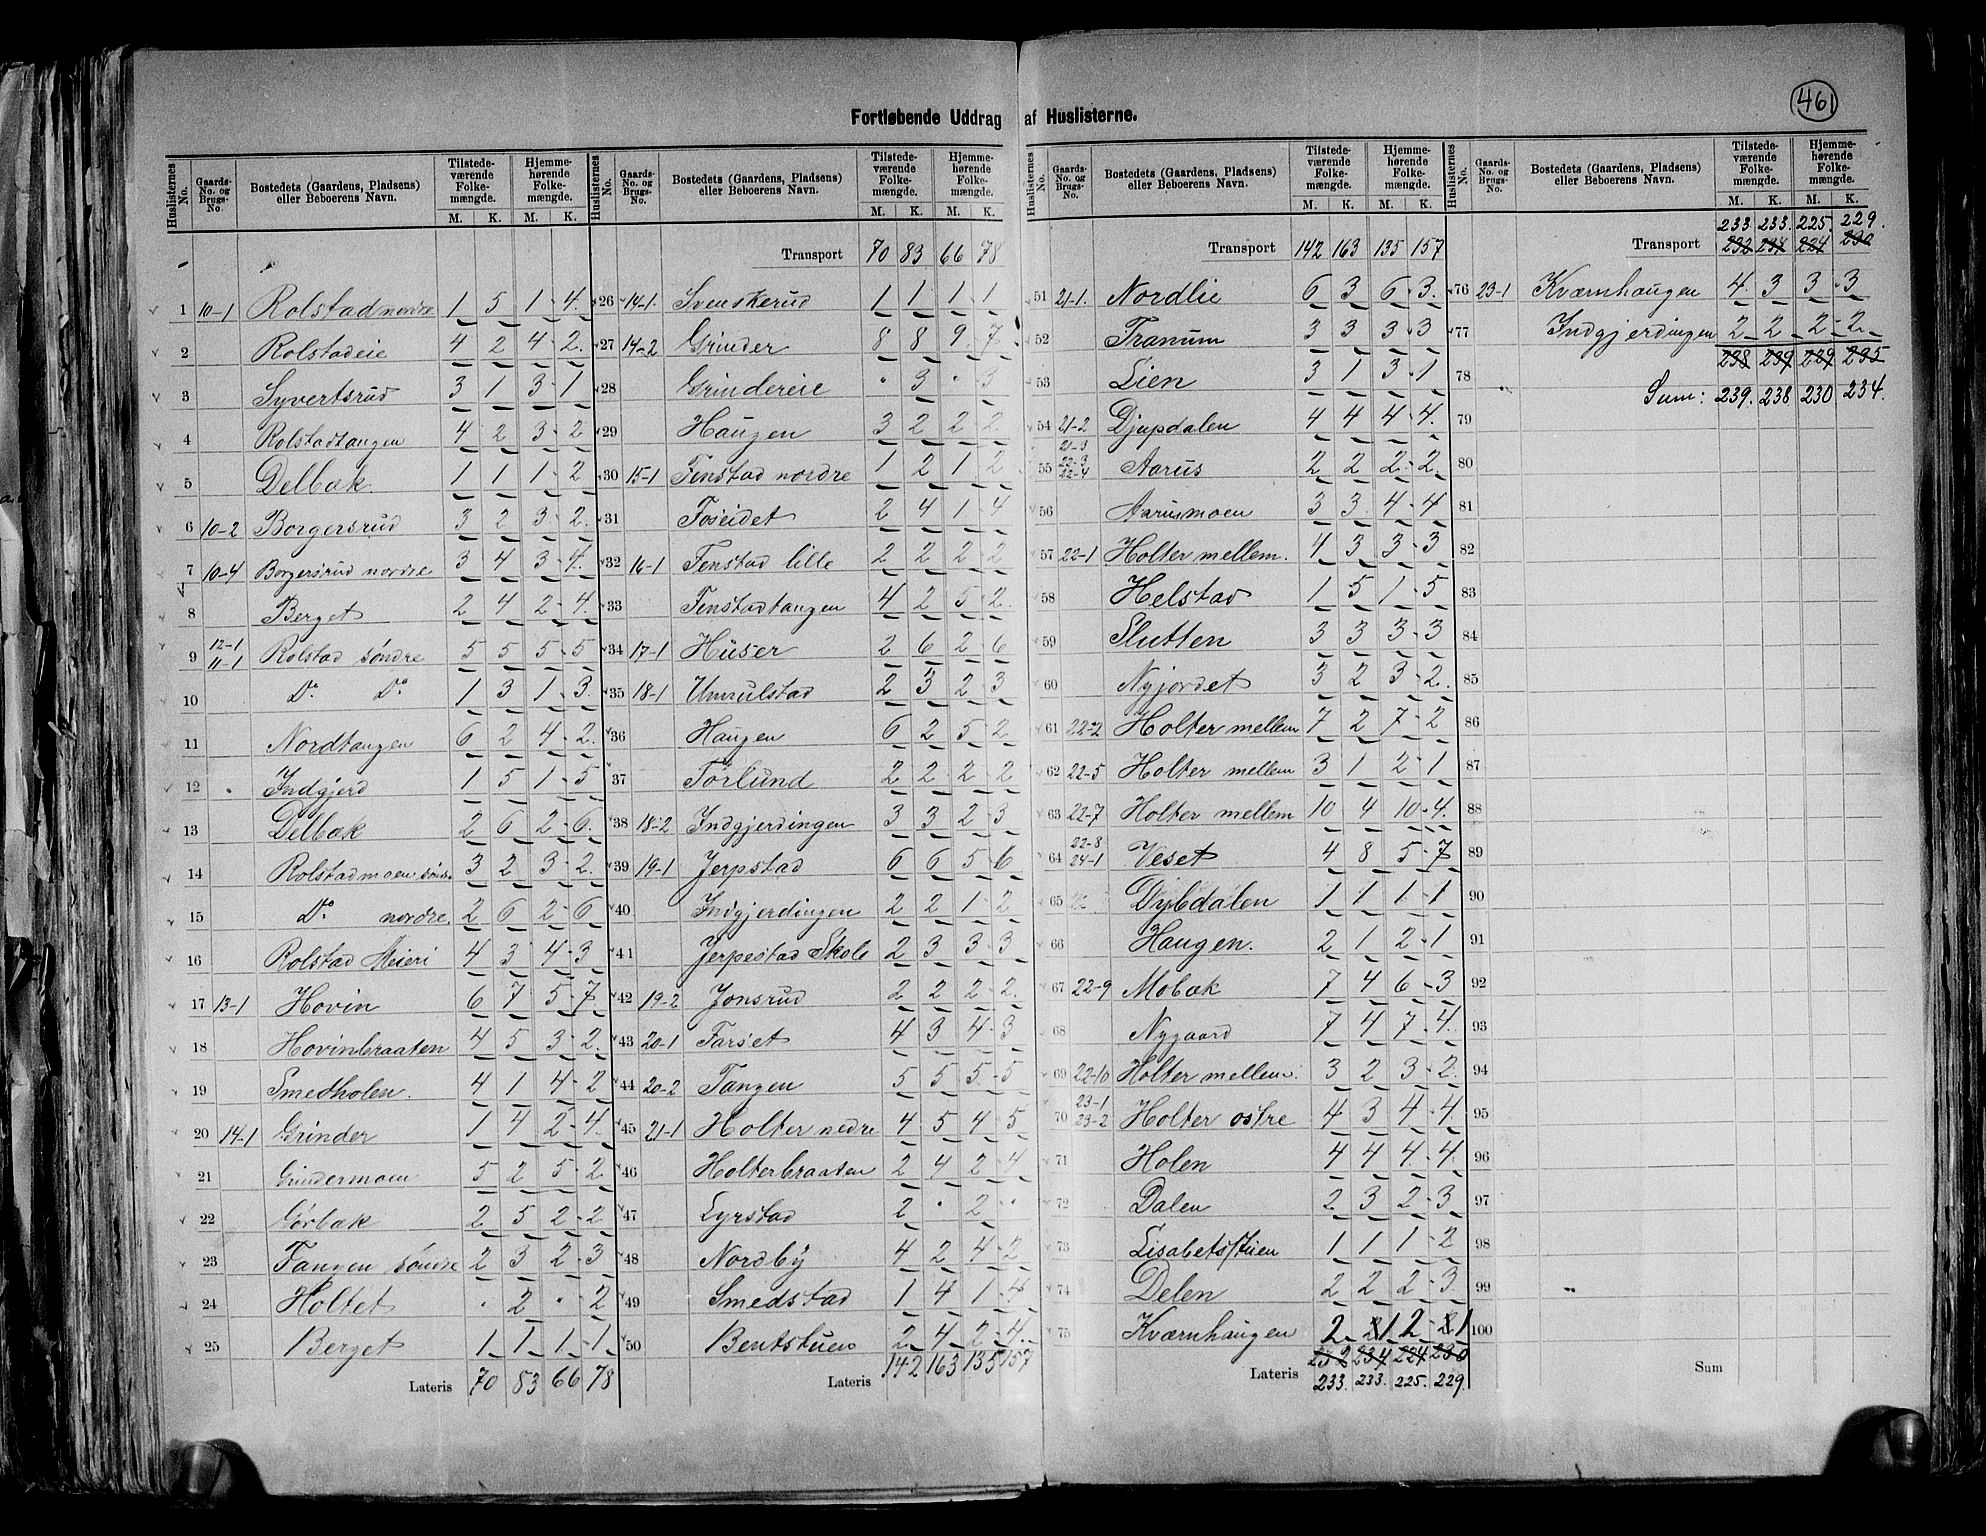 461
Fortløbende Uddrag af Huslisterne.
Huslisternes No. | Gaards-No. og Brugs-No. | Bostedets (Gaardens, Pladsens) eller Beboerens Navn. | Tilstedeværende Folkemængde. M. K. | Hjemmehørende Folkemængde. M. K.
1 10-1 Rolstad nordre 1 5 1 4
2 Rolstadeie 4 2 4 2
3 Syvertsrud 3 1 3 1
4 Rolstadtangen 4 2 3 2
5 Delbæk 1 1 1 2
6 10-2 Borgersrud 3 2 3 2
7 10-4 Borgersrud nordre 3 4 3 4
8 Berget 2 4 2 4
9 12-1 11-1 Rolstad söndre 5 5 5 5
10 Do Do 1 3 1 3
11 Nordtangen 6 2 4 2
12 Indgjerd 1 5 1 5
13 Delbæk 2 6 2 6
14 Rolstadmoen söndre 3 2 3 2
15 Do nordre 2 6 2 6
16 Rolstad Meieri 4 3 4 3
17 13-1 Hovin 6 7 5 7
18 Hovinbraaten 4 5 3 2
19 Smedholen 4 1 4 2
20 14-1 Grinder 1 4 2 4
21 Grindermoen 5 2 5 2
22 Görbæk 2 5 2 2
23 Tangen söndre 2 3 2 3
24 Holtet . 2 . 2
25 Berget 1 1 1 1
Lateris 70 83 66 78
Transport 70 83 66 78
26 14-1 Svenskerud 1 1 1 1
27 14-2 Grinder 8 8 9 7
28 Grindereie . 3 . 3
29 Haugen 3 2 2 2
30 15-1 Fenstad nordre 1 2 1 2
31 Foseidet 2 4 1 4
32 16-1 Fenstad lille 2 2 2 2
33 Fenstadtangen 4 2 5 2
34 17-1 Huser 2 6 2 6
35 18-1 Umrulstad 2 3 2 3
36 Haugen 6 2 5 2
37 Forlund 2 2 2 2
38 18-2 Indgjerdingen 3 3 2 3
39 19-1 Jerpstad 6 6 5 6
40 Indgjerdingen 2 2 1 2
41 Jerpestad Skole 2 3 3 3
42 19-2 Jonsrud 2 2 2 2
43 20-1 Farset 4 3 4 3
44 20-2 Tangen 5 5 5 5
45 21-1 Holter nedre 4 5 4 5
46 Holterbraaten 2 4 2 4
47 Lyrstad 2 . 2 .
48 Nordby 4 2 4 2
49 Smedstad 1 4 1 4
50 Bentstuen 2 4 2 4
Lateris 142 163 135 157
Transport 142 163 135 157
51 21-1 Nordlie 6 3 6 3
52 Tranum 3 3 3 3
53 Lien 3 1 3 1
54 21-2 Djupdalen 4 4 4 4
55 21-3 22-3 22-4 Aarus 2 2 2 2
56 Aarusmoen 3 3 4 4
57 22-1 Holter mellem 4 3 3 3
58 Helstad 1 5 1 5
59 Slutten 3 3 3 3
60 Nyjordet 3 2 3 2
61 22-2 Holter mellem 7 2 7 2
62 22-5 Holter mellem 3 1 2 1
63 22-7 Holter mellem 10 4 10 4
64 22-8 24-1 Veset 4 8 5 7
65 Dybdalen 1 1 1 1
66 Haugen 2 1 2 1
67 22-9 Mobæk 7 4 6 3
68 Nygaard 7 4 7 4
69 22-10 Holter mellem 3 2 3 2
70 23-1 23-2 Holter östre 4 3 4 4
71 Holen 4 4 4 4
72 Dalen 2 3 2 3
73 Lisabetsstuen 1 1 1 2
74 Delen 2 2 2 3
75 Kværnhaugen 2 1 2 1
232 234 224 230
Lateris 233. 233. 225. 229.
233. 233. 225. 229.
Transport 232 234 224 230
76 23-1 Kværnhaugen 4 3 3 3
77 Indgjerdingen 2 2 2 2
238 239 229 235
78 Sum: 239. 238 230 234.
79
80
81
82
83
84
85
86
87
88
89
90
91
92
93
94
95
96
97
98
99
100
Sum